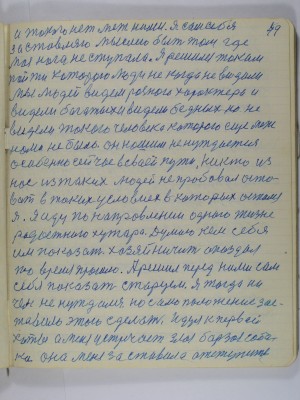 49
и такого нет меж ними. Я сам себя
заставляю мыслено быть там где
моя нога не ступала. Я решил таким
пойти которого люди не когда не видали
мы людей видем разного характера и
видели богатых и видели бедных но не
видели такого человека которого еще меж
нами не было он нашим не нуждается
особенно сейчас в своей пути, никто из
нас из таких людей не пробовал
в таких условиях в которых остался
я. Я иду по направлении одного
хутора. Думаю кем себя
им показать хозяйничит опоздал
это время прошло. Я решил перед ними сам
себя показать старцом. Я тогда ни
чем не нуждался но само положение зас-
тавило этого сделать. Иду я к первой
хаты а меня встречает злая борзая соба-
ка она меня заставила отступить